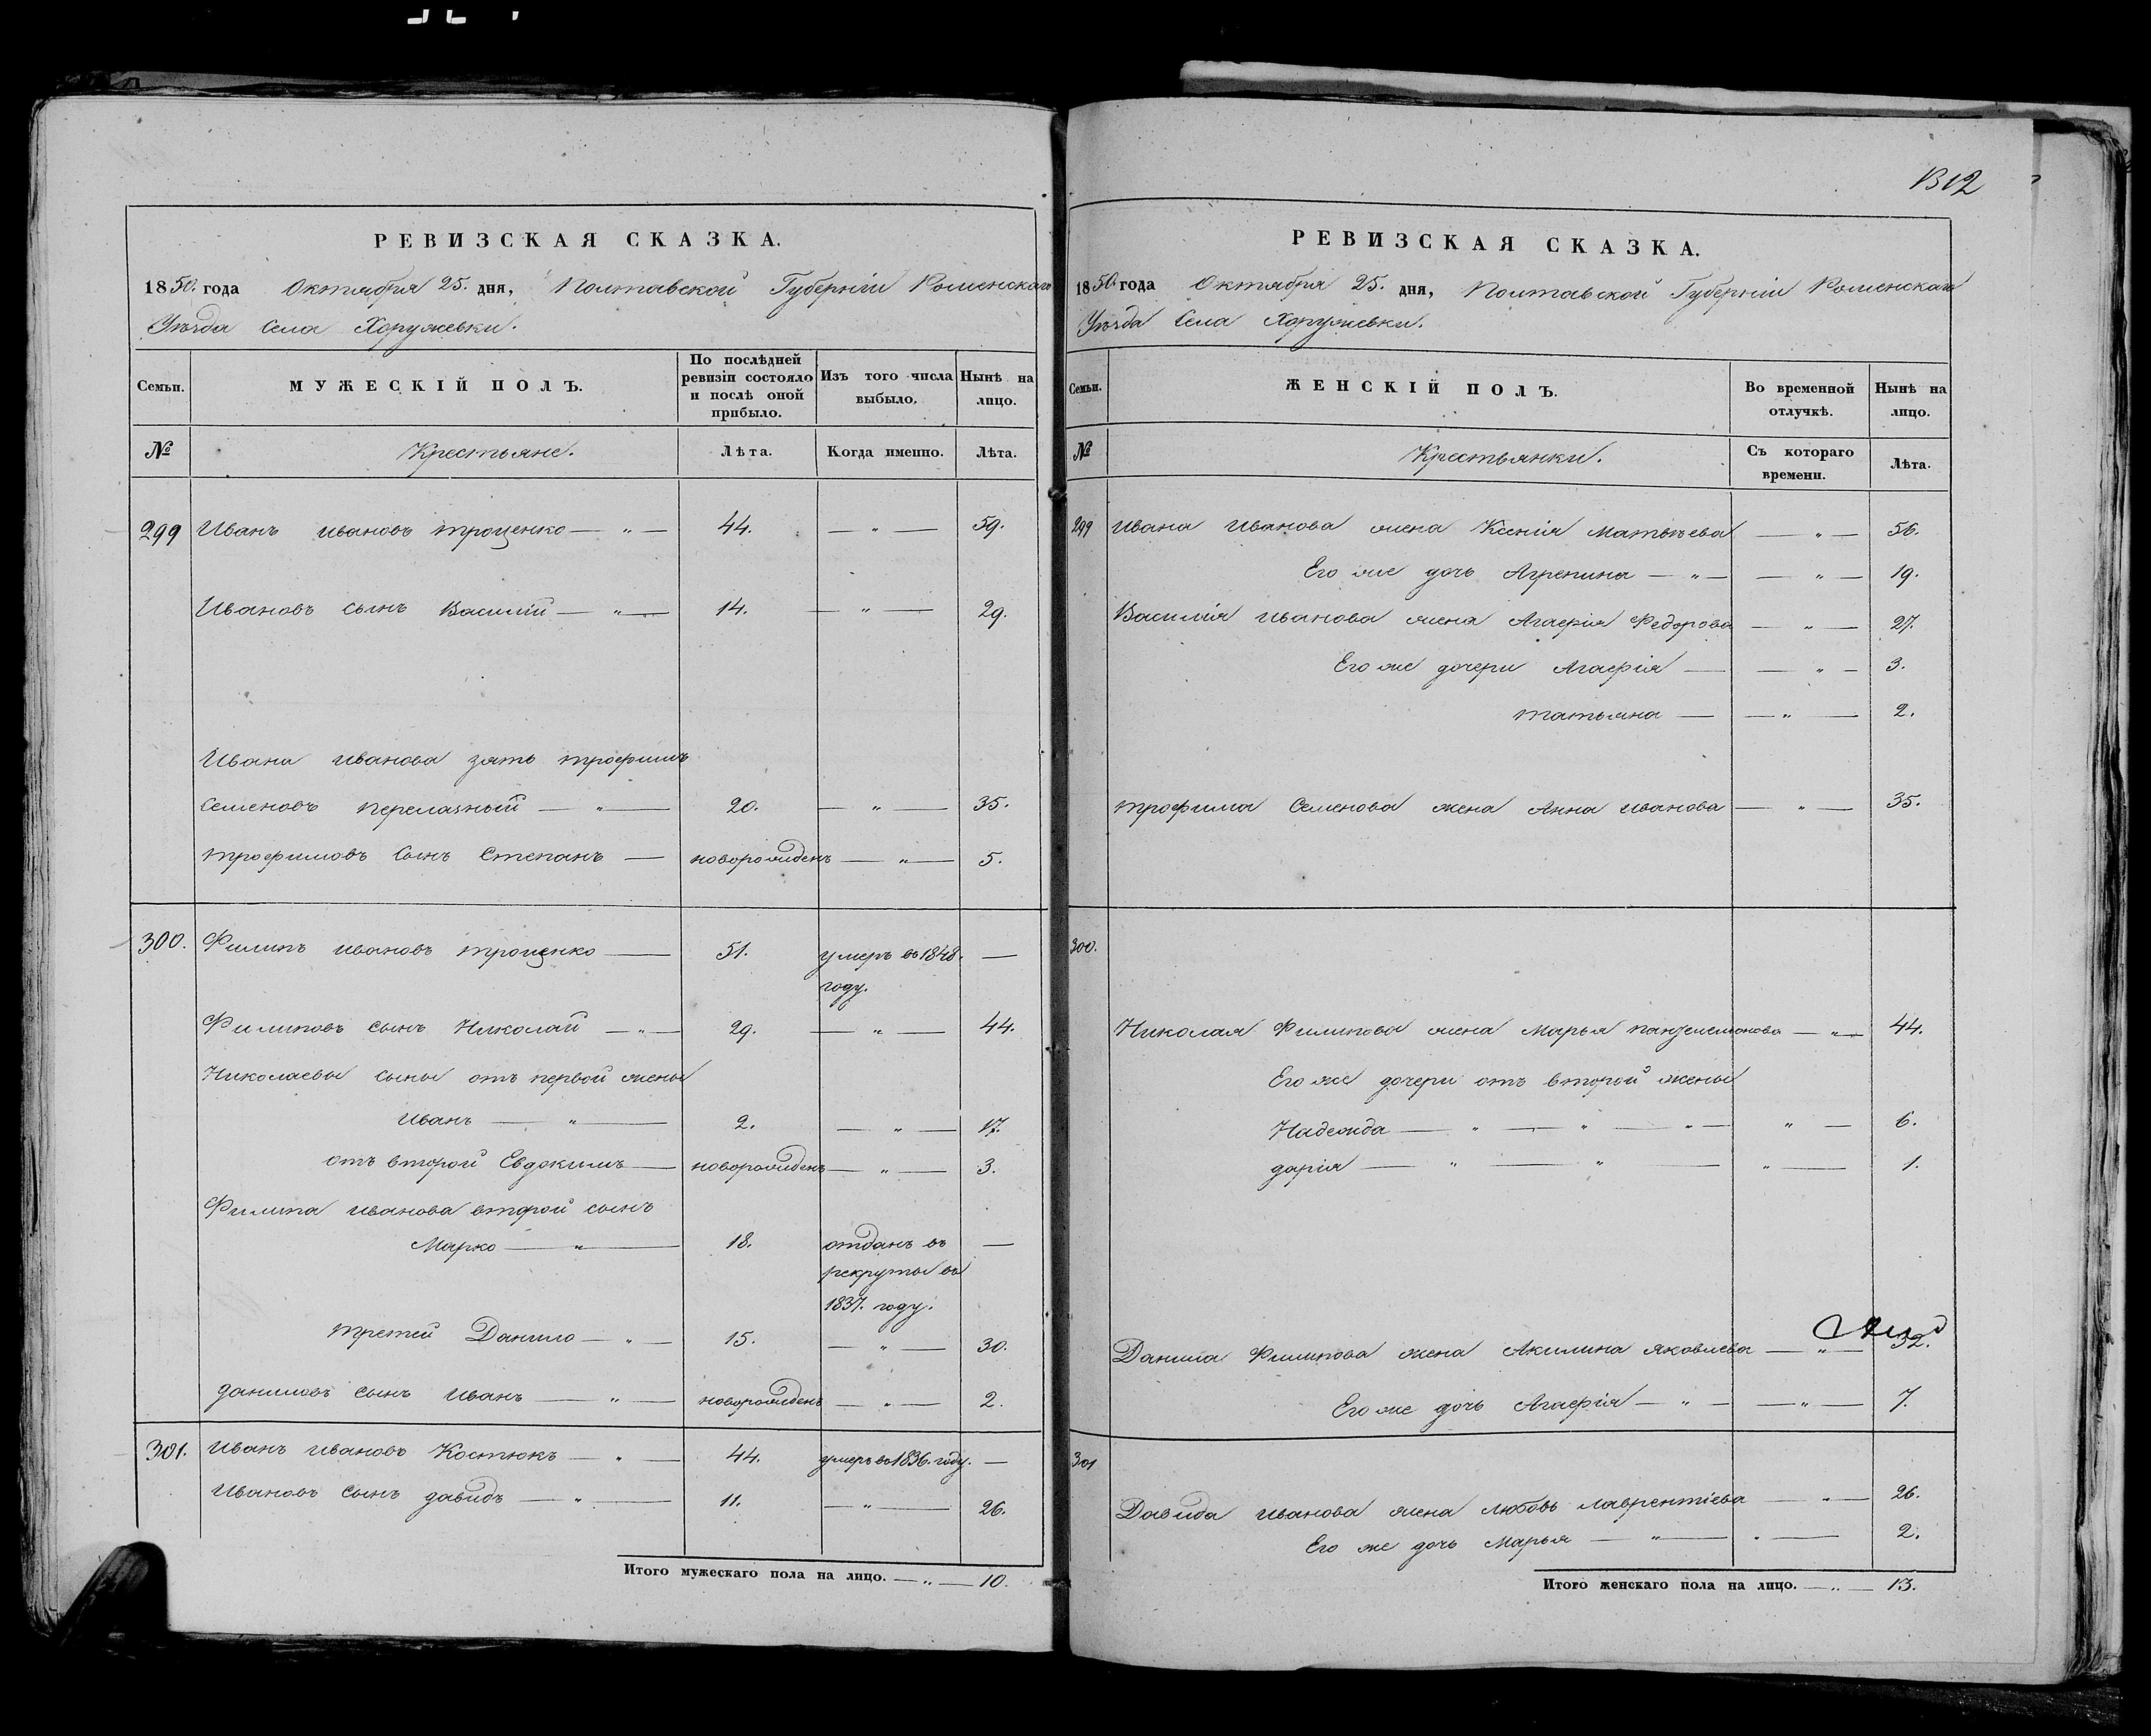 РЕВИЗСКАЯ СКАЗКА.
1850. года Октября 25. дня, Полтавской Губерніи Роменскаго
Уѣзда Села Хоружевки.
Семьи. МУЖЕСКІЙ ПОЛЪ. По послѣдней ревизіи состояло и послѣ оной прибыло. Изъ того числа выбыло. Нынѣ на лицо.
№ Крестьяне. Лѣта. Когда именно. Лѣта.
299 Иванъ Ивановъ Троценко — „ — 44. — „ — 59.
Ивановъ сынъ Василій — „ — 14. — „ — 29.
Ивана Иванова зять Трофимъ
Семеновъ Перелазный — „ — 20. — „ — 35.
Трофимовъ Сынъ Степанъ — новорожденъ — „ — 5.
300. Филипъ Ивановъ Троценко — 51. умеръ въ 1848. —
году.
Филиповъ сынъ Николай — „ — 29. — „ — 44.
Николаевы сыны отъ первой жены
Иванъ — „ — 2. — „ — 17.
отъ второй Евдокимъ — новорожденъ — „ — 3.
Филипа Иванова второй сынъ
Марко — „ — 18. отданъ въ —
рекруты въ
1837. году.
третей Данило — „ — 15. — „ — 30.
Даниловъ сынъ Иванъ — „ — новорожденъ — „ — 2.
301. Иванъ Ивановъ Костюкъ — „ — 44. умеръ въ 1836. году. —
Ивановъ Сынъ Давидъ — „ — 11. — „ — 26.
Итого мужескаго пола на лицо. — „ — 10.
1312
РЕВИЗСКАЯ СКАЗКА.
1850 года Октября 25. дня, Полтавской Губерніи Роменскаго
Уѣзда Села Хоружевки.
Семьи. ЖЕНСКІЙ ПОЛЪ. Во временной отлучкѣ. Нынѣ на лицо.
№ Крестьянки. Съ котораго времени. Лѣта.
299 Ивана Иванова жена Ксенія Матвѣева — „ — 56.
Его же дочь Агрепина — „ — — „ — 19.
Василія Иванова жена Агафія Федорова — „ — 27.
Его же дочери Агафія — — „ — 3.
Татьяна — — „ — 2.
Трофима Семенова жена Анна Иванова — „ — 35.
300.
Николая Филипова жена Марья Пантелемонова — „ — 44.
Его же дочери отъ второй жены
Надежда — „ — „ — „ — „ — 6.
Дарія — „ — „ — „ — 1.
Данила Филипова жена Акилина Яковлева — „ — 32.
Его же дочь Агафія — „ — — „ — 7.
301
Давида Иванова жена Любовь Лаврентіева — „ — 26.
Его же дочь Марья — „ — „ — 2.
Итого женскаго пола на лицо. — „ — 13.